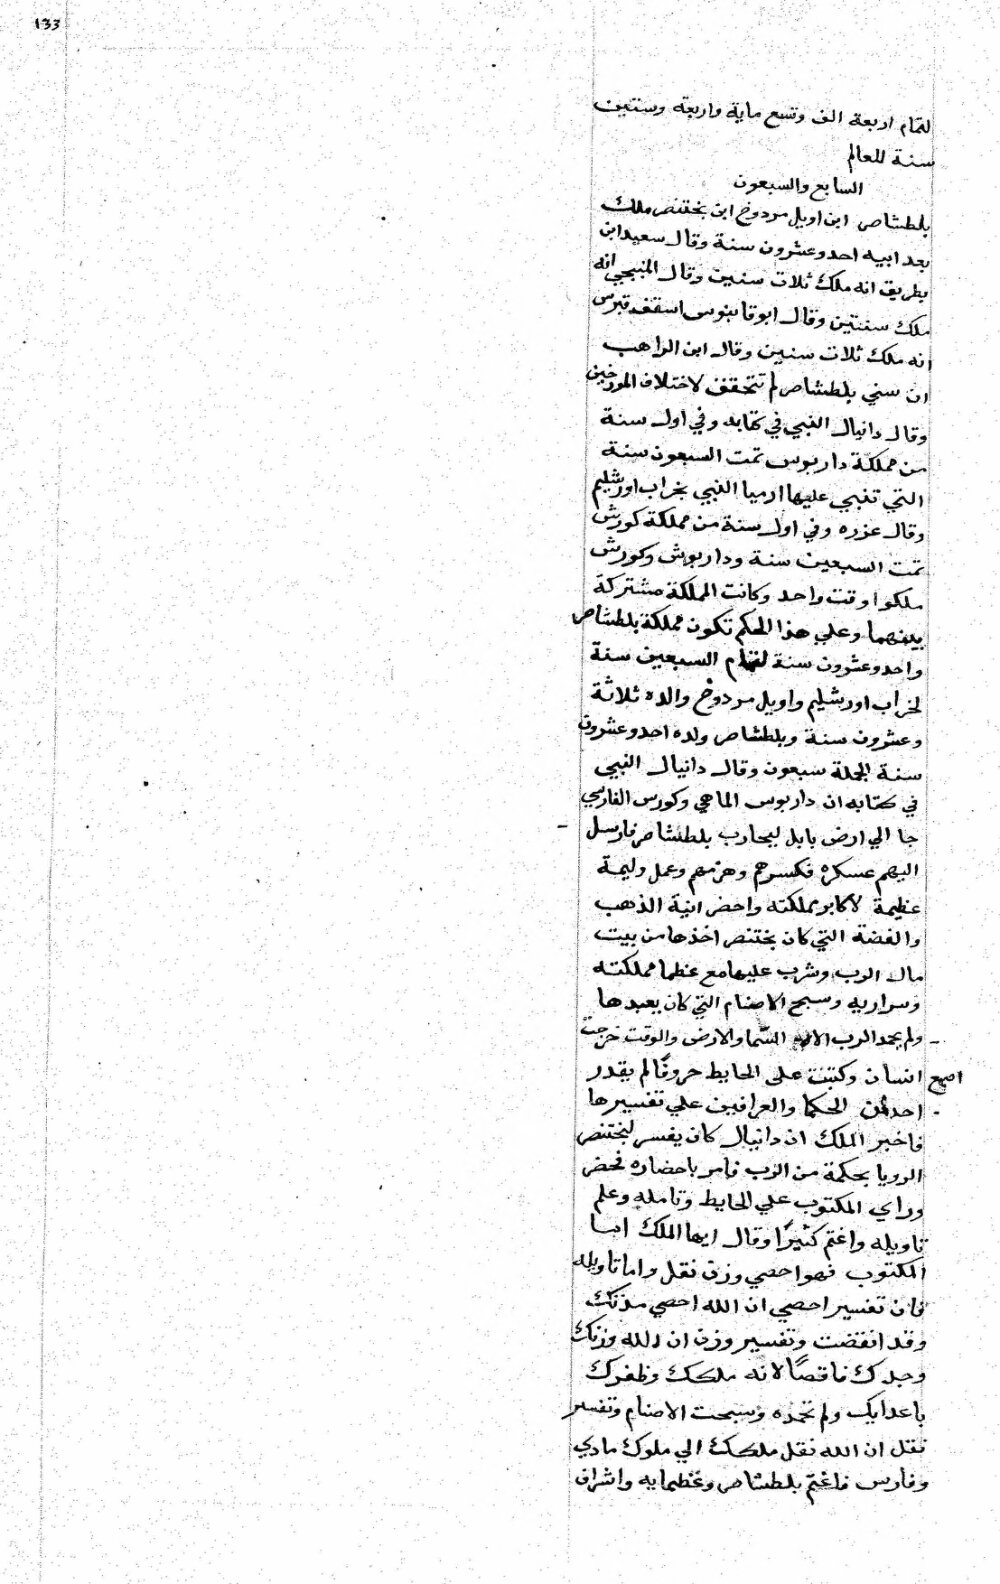 133
لتمام اربعة الف وتسع ماية واربعة وستين
سنة للعالم
السابع والسبعون
بلطشاصر ابن اويل مردوخ ابن بختنصر ملك
بعد ابيه احد وعشرون سنة وقال سعيد ابن
بطريق انه ملك ثلاث سنين وقال المنبجي انه
ملك سنتين وقال ابوفانيوس اسقف قبرس
انه ملك ثلاث سنين وقال ابن الراهب
ان سني بلطشاصر لم تتحقف لاختلاف المورخين
وقال دانيال النبي في كتابه وفي اول سنة
من مملكة داريوس تمت السبعون سنة
التي تنبي عليها ارميا النبي بخراب اورشليم
وقال عزره وفي اول سنة من مملكة كورش
تمت السبعين سنة وداريوش وكورش
ملكوا وقت واحد وكانت المملكة مشتركة
بينهما وعلي هذا الحكم تكون مملكة بلطشاصر
واحد وعشرون سنة لتمام السبعين سنة
لخراب اورشليم واويل مردوخ والده ثلاثة
وعشرون سنة وبلطشاصر ولده احد وعشرون
سنة الجملة سبعون وقال دانيال النبي
في كتابه ان داريوس الماهي وكورس الفارسي
جا الي ارض بابل ليحارب بلطشاصر فارسل
اليهم عسكره فكسرهم وهزمهم وعمل وليمة
عظيمة لاكابر مملكته واحضر انية الذهب
والفضة التي كان بختنصر اخذها من بيت
مال الرب وشرب عليها مع عظما مملكته
وسراريه وسبح الاصنام التي كان يعبدها
ولم يمجد الرب الاه السما والارض والوقت خرجت
اصبع انسان وكتبت على الحايط حروفا لم يقدر
احد من الحكما والعرافين علي تفسيرها
فاخبر الملك ان دانيال كان يفسر لبختنصر
الرويا بحكمة من الرب فامر باحضاره فحضر
وراي المكتوب علي الحايط وتامله وعلم
تاويله واغتم كثيرًا وقال ايها الملك اما
المكتوب فهو احصي وزن نقل واما تاويله
فان تفسير احصي ان الله احصي مدتك
وقد انقضت وتفسير وزن ان الله وزنك
وجدك ناقصًا لانه ملكك وظفرك
باعدايك ولم تحمده وسبحت الاصنام وتفسير
نقل ان الله نقل ملكك الي ملوك مادي
وفارس فاغتم بلطشاصر وعظمايه واشراف